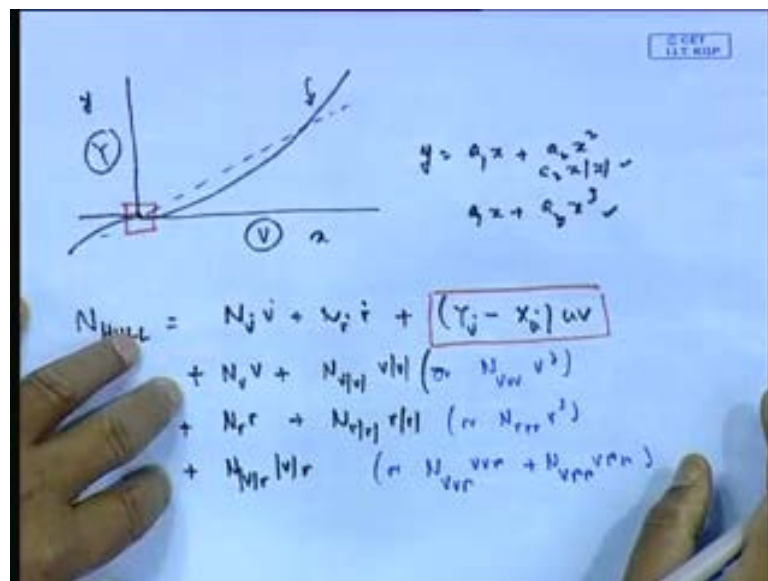 © CET
I.I.T. KGP
y
Y
V
x
y = a₁x + a₂x²
a₂x|x| ✓
a₁x + a₃x³ ✓
N_HULL = N_v̇ v̇ + N_ṙ ṙ + (Y_v̇ - X_u̇) uv
+ N_v v + N_v|v| v|v| (or N_vvv v³)
+ N_r r + N_r|r| r|r| (or N_rrr r³)
+ N_|v|r |v|r (or N_vvr vvr + N_vrr vrr)